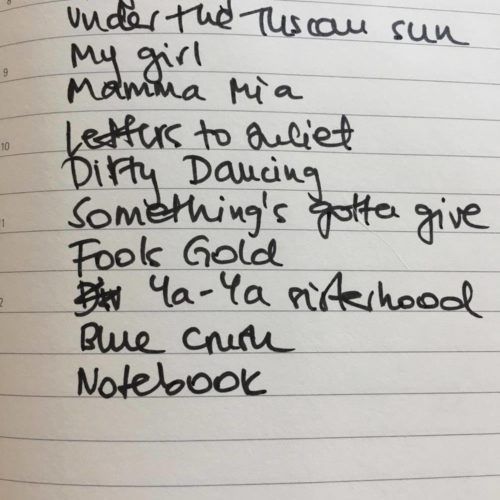 under the Tuscan sun
9
My girl
Mamma Mia
10
Letters to Juliet
Dirty Dancing
1
Something's gotta give
Fools Gold
2
Ya-Ya sisterhood
Blue Crush
Notebook